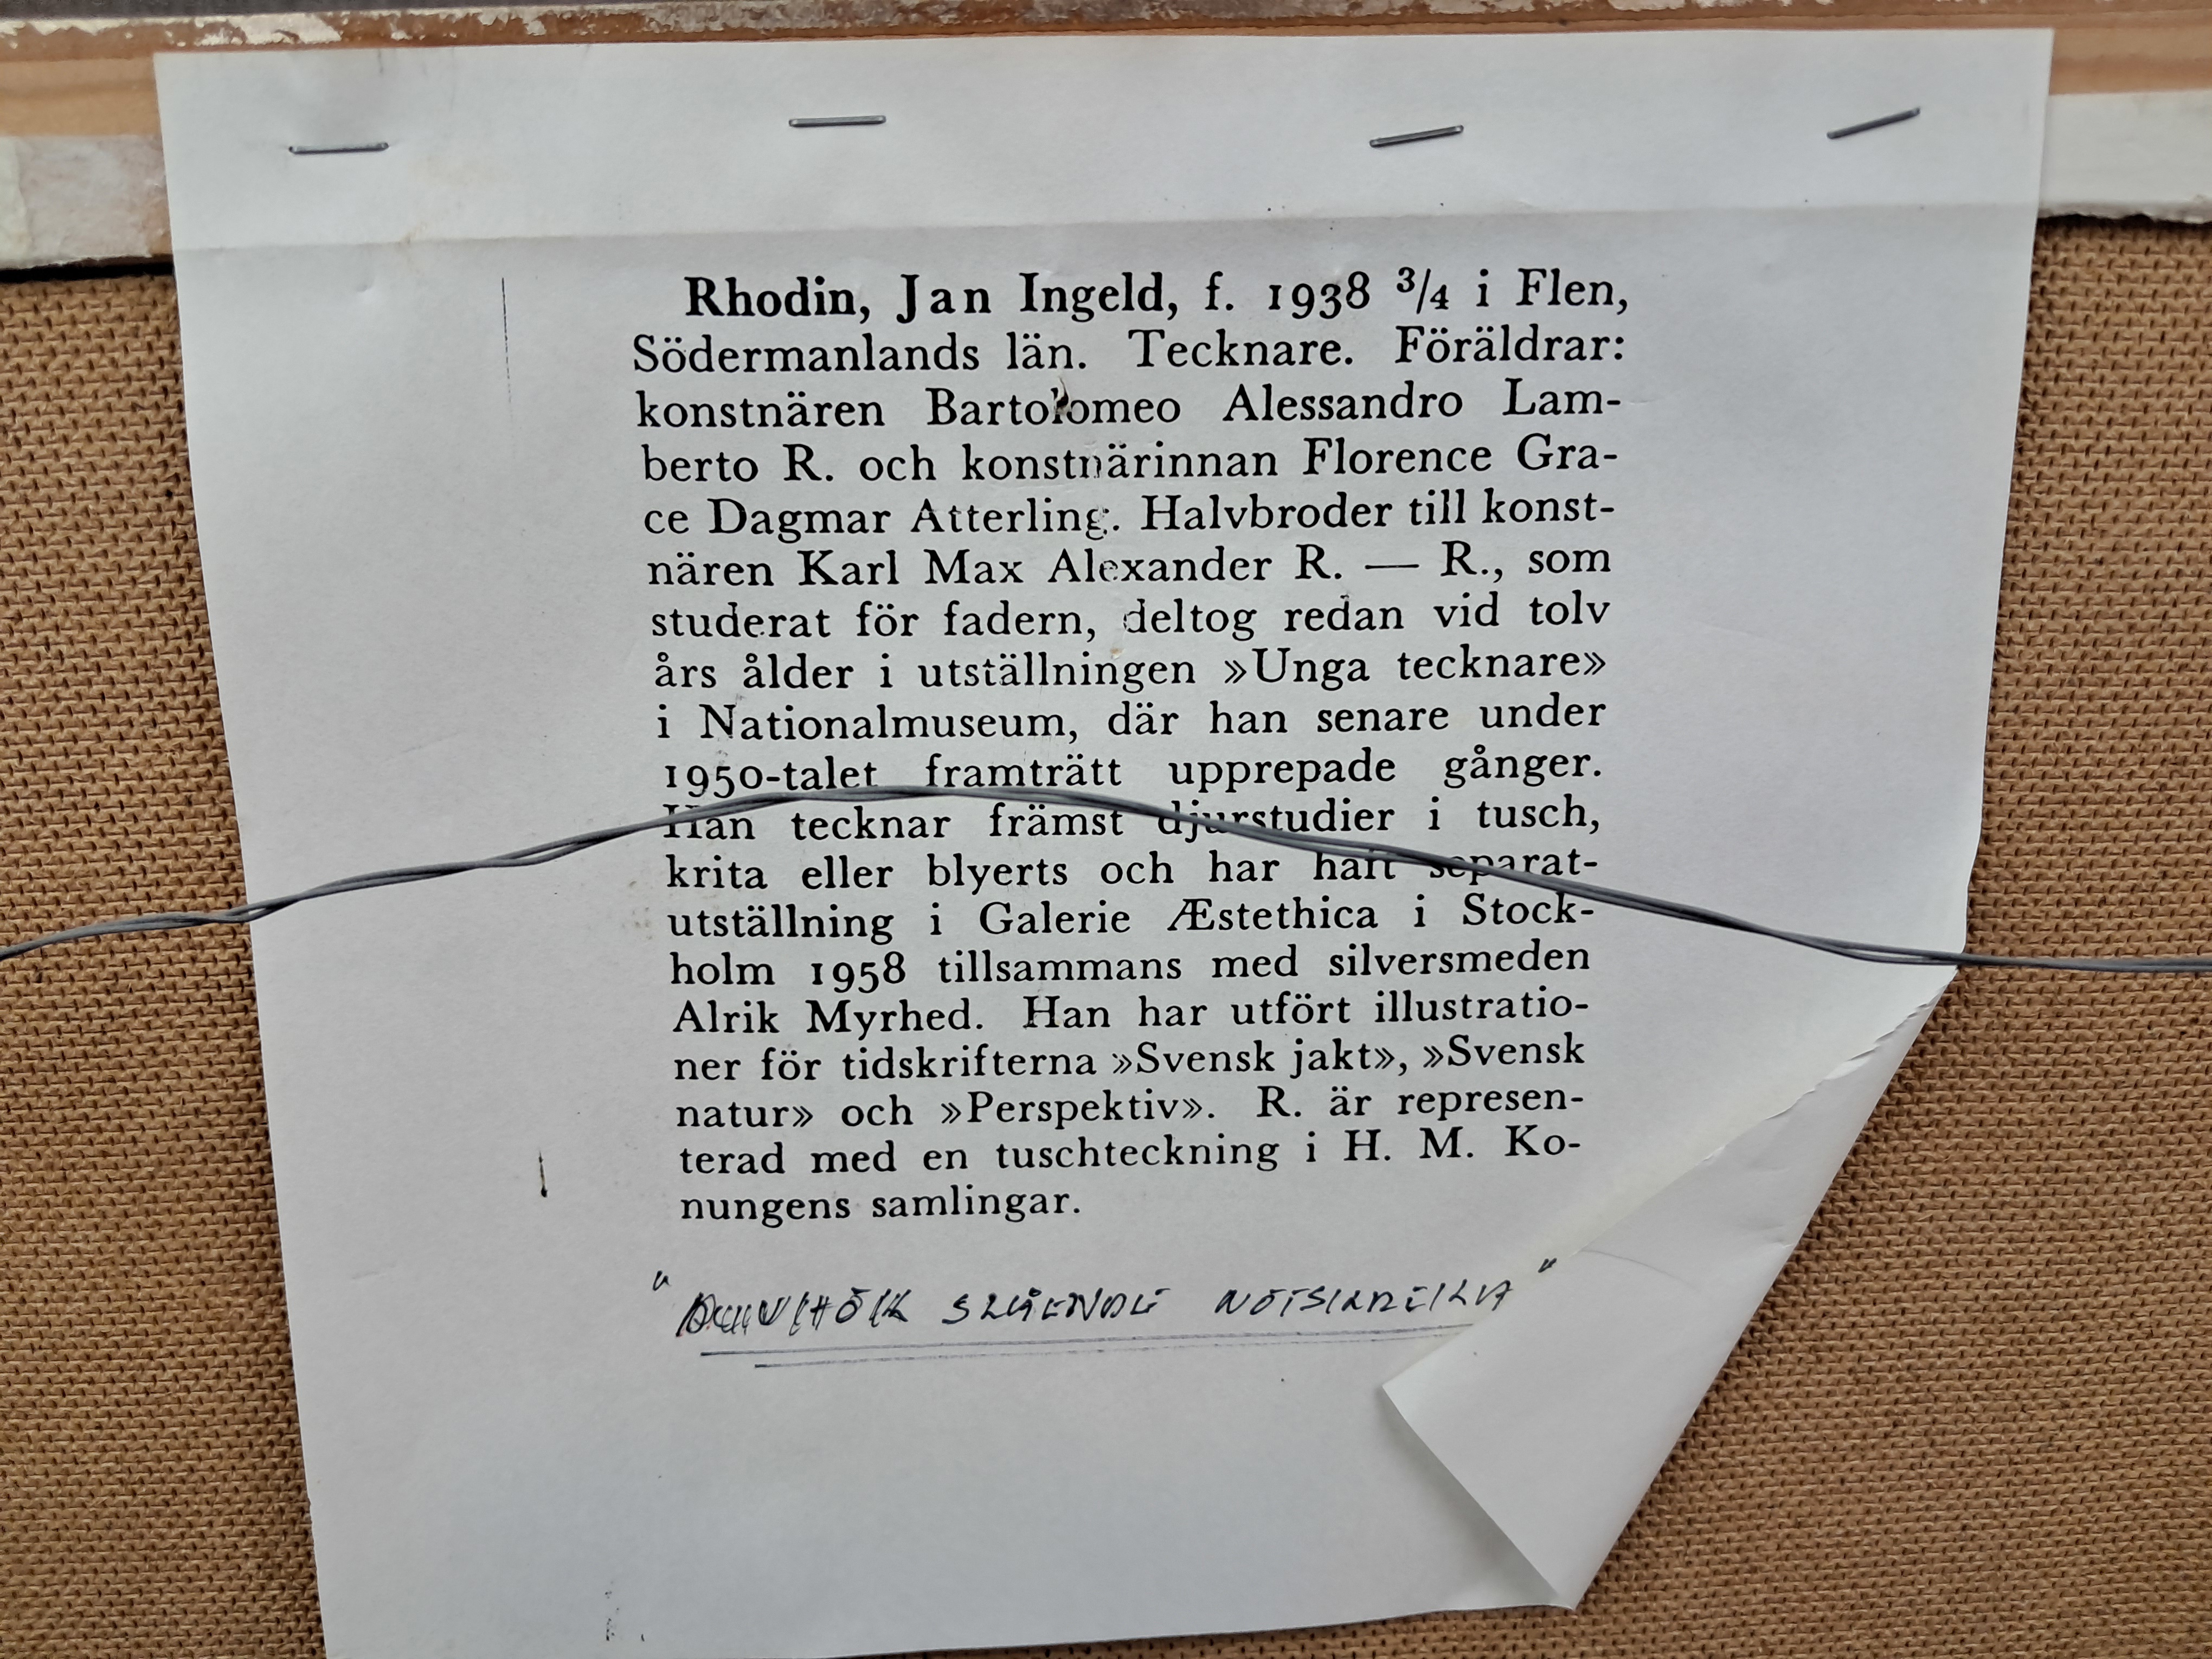 Rhodin, Jan Ingeld, f. 1938 3/4 i Flen,
Södermanlands län. Tecknare. Föräldrar:
konstnären Bartolomeo Alessandro Lam-
berto R. och konstnärinnan Florence Gra-
ce Dagmar Atterling. Halvbroder till konst-
nären Karl Max Alexander R. — R., som
studerat för fadern, deltog redan vid tolv
års ålder i utställningen »Unga tecknare»
i Nationalmuseum, där han senare under
1950-talet framträtt upprepade gånger.
Han tecknar främst djurstudier i tusch,
krita eller blyerts och har haft separat-
utställning i Galerie Æstethica i Stock-
holm 1958 tillsammans med silversmeden
Alrik Myrhed. Han har utfört illustratio-
ner för tidskrifterna »Svensk jakt», »Svensk
natur» och »Perspektiv». R. är represen-
terad med en tuschteckning i H. M. Ko-
nungens samlingar.
" SLÅENDE NÖTSKRIKA "